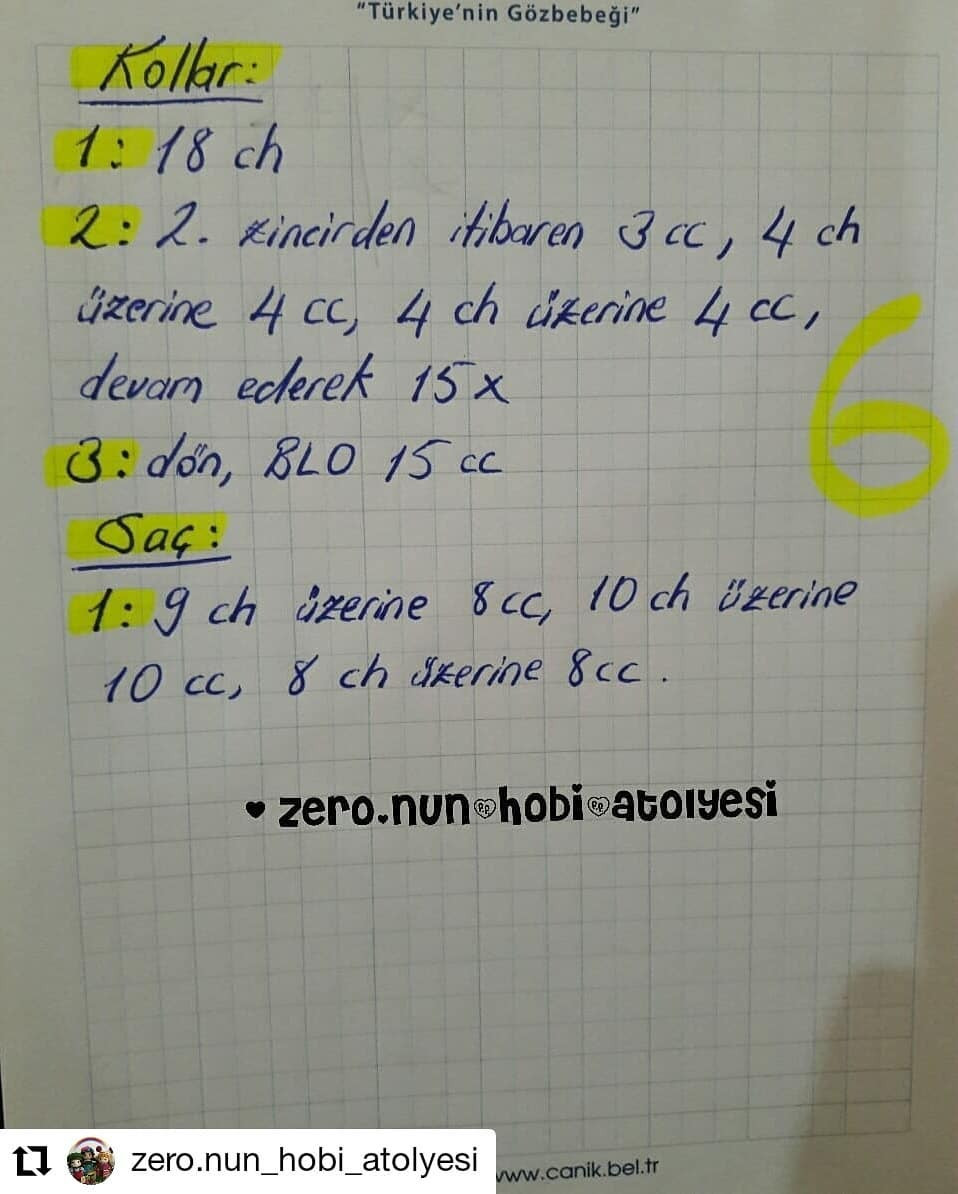 "Türkiye'nin Gözbebeği"
Kollar:
1: 18 ch
2: 2. zincirden itibaren 3 cc, 4 ch
üzerine 4 cc, 4 ch üzerine 4 cc,
devam ederek 15 x
3: dön, BLO 15 cc
6
Saç:
1: 9 ch üzerine 8 cc, 10 ch üzerine
10 cc, 8 ch üzerine 8 cc.
♥ zero.nun hobi atolyesi
zero.nun_hobi_atolyesi
www.canik.bel.tr